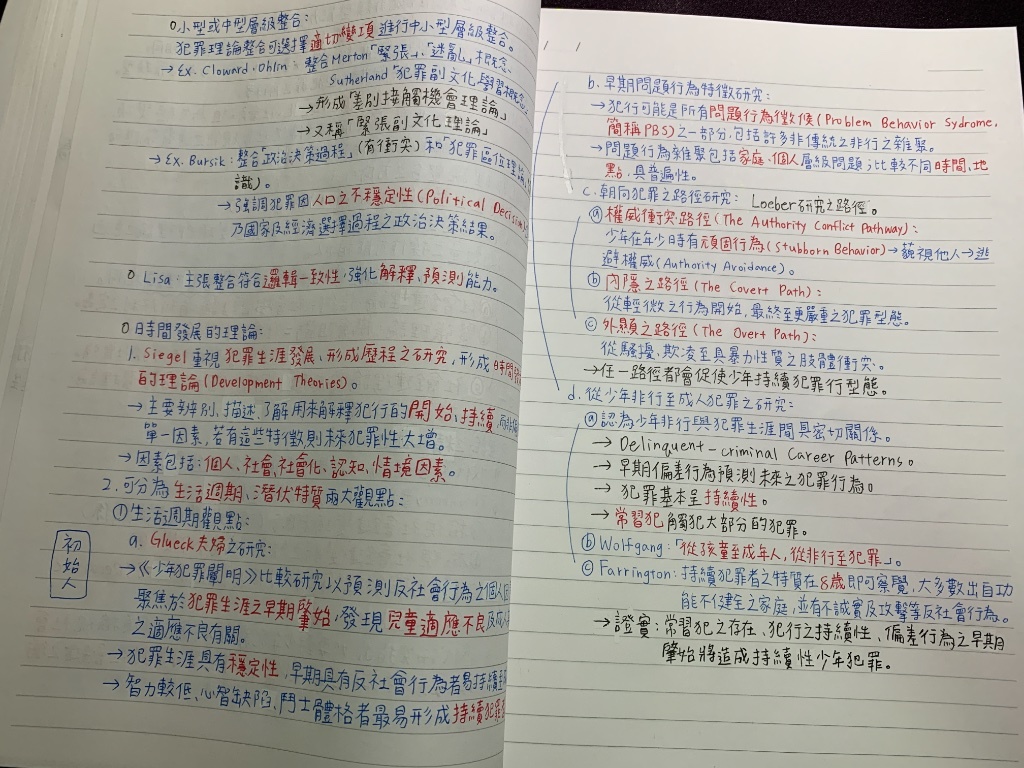 ○小型或中型層級整合：
犯罪理論整合可選擇適切變項進行中小型層級整合。
→Ex. Cloward、Ohlin：整合Merton「緊張」、「迷亂」概念
Sutherland「犯罪副文化學習概念」
→形成「差別接觸機會理論」
→又稱「緊張副文化理論」
→Ex. Bursik：整合「政治決策過程」(有衝突)和「犯罪區位理論
識)。
→強調犯罪因人口之不穩定性(Political Decision)
乃國家及經濟選擇過程之政治決策結果。
○ Lisa：主張整合符合邏輯一致性，強化解釋、預測能力。
○時間發展的理論：
1. Siegel重視犯罪生涯發展、形成歷程之研究，形成時間
的理論(Development Theories)。
→主要辨別、描述、了解用來解釋犯行的開始、持續
單一因素，若有這些特徵則未來犯罪性大增。
→因素包括：個人、社會、社會化、認知、情境因素。
2.可分為生活週期、潛伏特質兩大觀點：
①生活週期觀點：
初始人
a. Glueck夫婦之研究：
→《少年犯罪闡明》比較研究以預測反社會行為之個人
聚焦於犯罪生涯之早期肇始，發現兒童適應不良及成人
之適應不良有關。
→犯罪生涯具有穩定性，早期具有反社會行為者易持續
→智力較低、心智缺陷、鬥士體格者最易形成持續犯罪
b.早期問題行為特徵研究：
→犯行可能是所有問題行為徵候(Problem Behavior Sydrome，
簡稱PBS)之一部分，包括許多非傳統之非行之雜聚。
→問題行為雜聚包括家庭、個人層級問題；比較不同時間、地
點，具普遍性。
c.朝向犯罪之路徑研究：Loeber研究之路徑。
ⓐ權威衝突路徑(The Authority Conflict Pathway)：
少年在年少時有頑固行為(Stubborn Behavior)→藐視他人→逃
避權威(Authority Avoidance)。
ⓑ內隱之路徑(The Covert Path)：
從輕微之行為開始，最終至更嚴重之犯罪型態。
ⓒ外顯之路徑(The Overt Path)：
從騷擾、欺凌至具暴力性質之肢體衝突。
→任一路徑都會促使少年持續犯罪行型態。
d.從少年非行至成人犯罪之研究：
ⓐ認為少年非行與犯罪生涯間具密切關係。
→ Delinquent-criminal Career Patterns。
→早期偏差行為預測未來之犯罪行為。
→犯罪基本呈持續性。
→常習犯觸犯大部分的犯罪。
ⓑWolfgang：「從孩童至成年人，從非行至犯罪」。
ⓒFarrington：持續犯罪者之特質在8歲即可察覺，大多數出自功
能不健全之家庭，並有不誠實及攻擊等反社會行為。
→證實：常習犯之存在、犯行之持續性、偏差行為之早期
肇始將造成持續性少年犯罪。